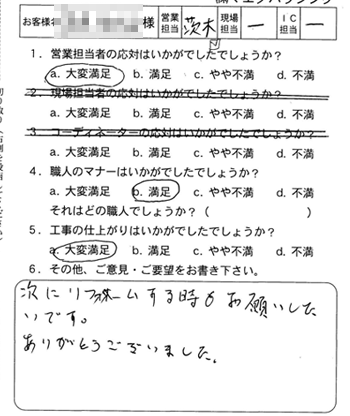 お客様名 様 営業担当 茨木 現場担当 ー ＩＣ担当 ー
1．営業担当者の応対はいかがでしたでしょうか？
a. 大変満足 b. 満足 c. やや不満 d. 不満
2．現場担当者の応対はいかがでしたでしょうか？
a. 大変満足 b. 満足 c. やや不満 d. 不満
3．コーディネーターの応対はいかがでしたでしょうか？
a. 大変満足 b. 満足 c. やや不満 d. 不満
4．職人のマナーはいかがでしたでしょうか？
a. 大変満足 b. 満足 c. やや不満 d. 不満
それはどの職人でしょうか？（ ）
5．工事の仕上がりはいかがでしたでしょうか？
a. 大変満足 b. 満足 c. やや不満 d. 不満
6．その他、ご意見・ご要望をお書き下さい。
次にリフォームする時もお願いした
いです。
ありがとうございました。